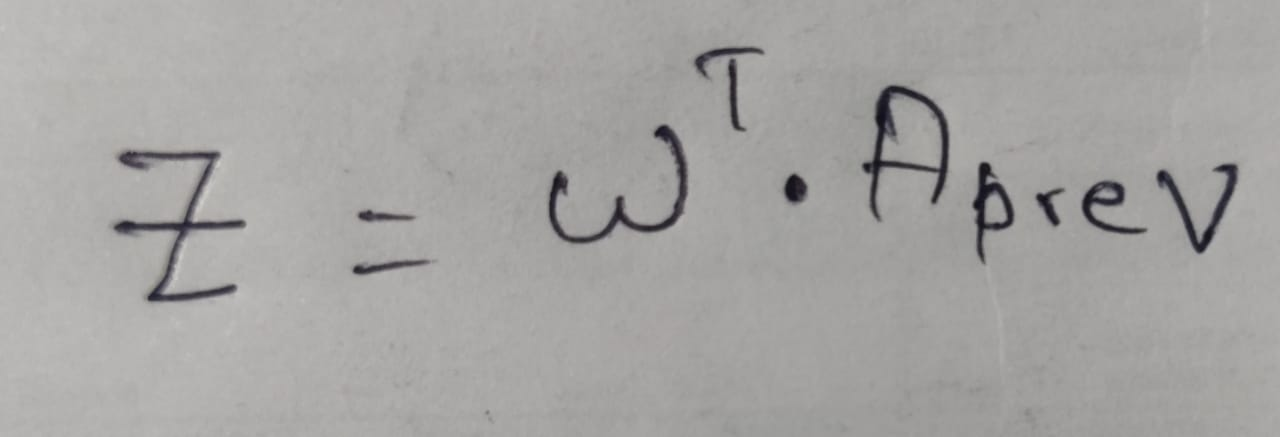 Z = ω^T · A_prev